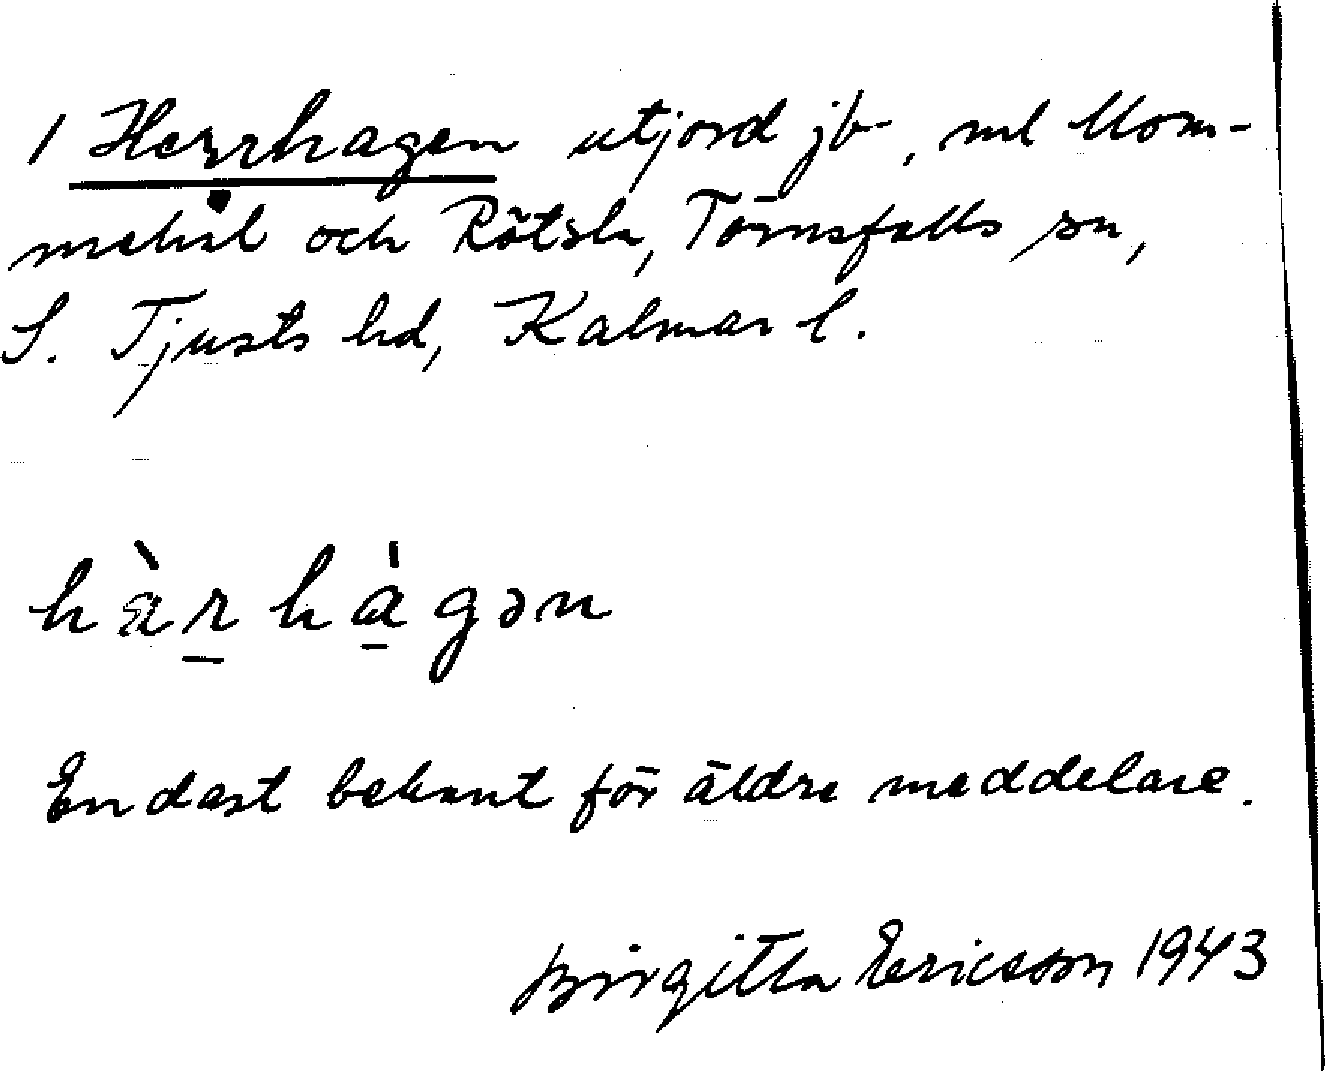 1 Herrhagen utjord jb., ml Mom-
mehål och Rötsla, Törnsfalls sn,
S. Tjusts hd, Kalmar l.
hàrhàgən
Endast bekant för äldre meddelare.
Birgitta Ericsson 1943